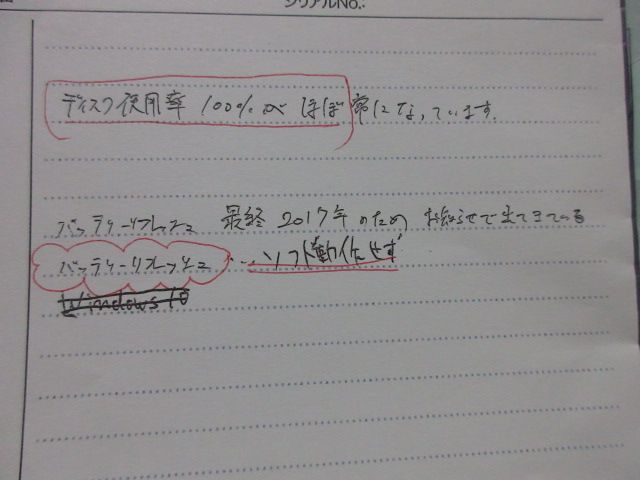 シリアルNo.:
ディスク使用率 100%が ほぼ 常になっています。
バッテリーリフレッシュ 最終 2017年のため お知らせで出てきている
バッテリーリフレッシュ …ソフト動作せず
Windows 10